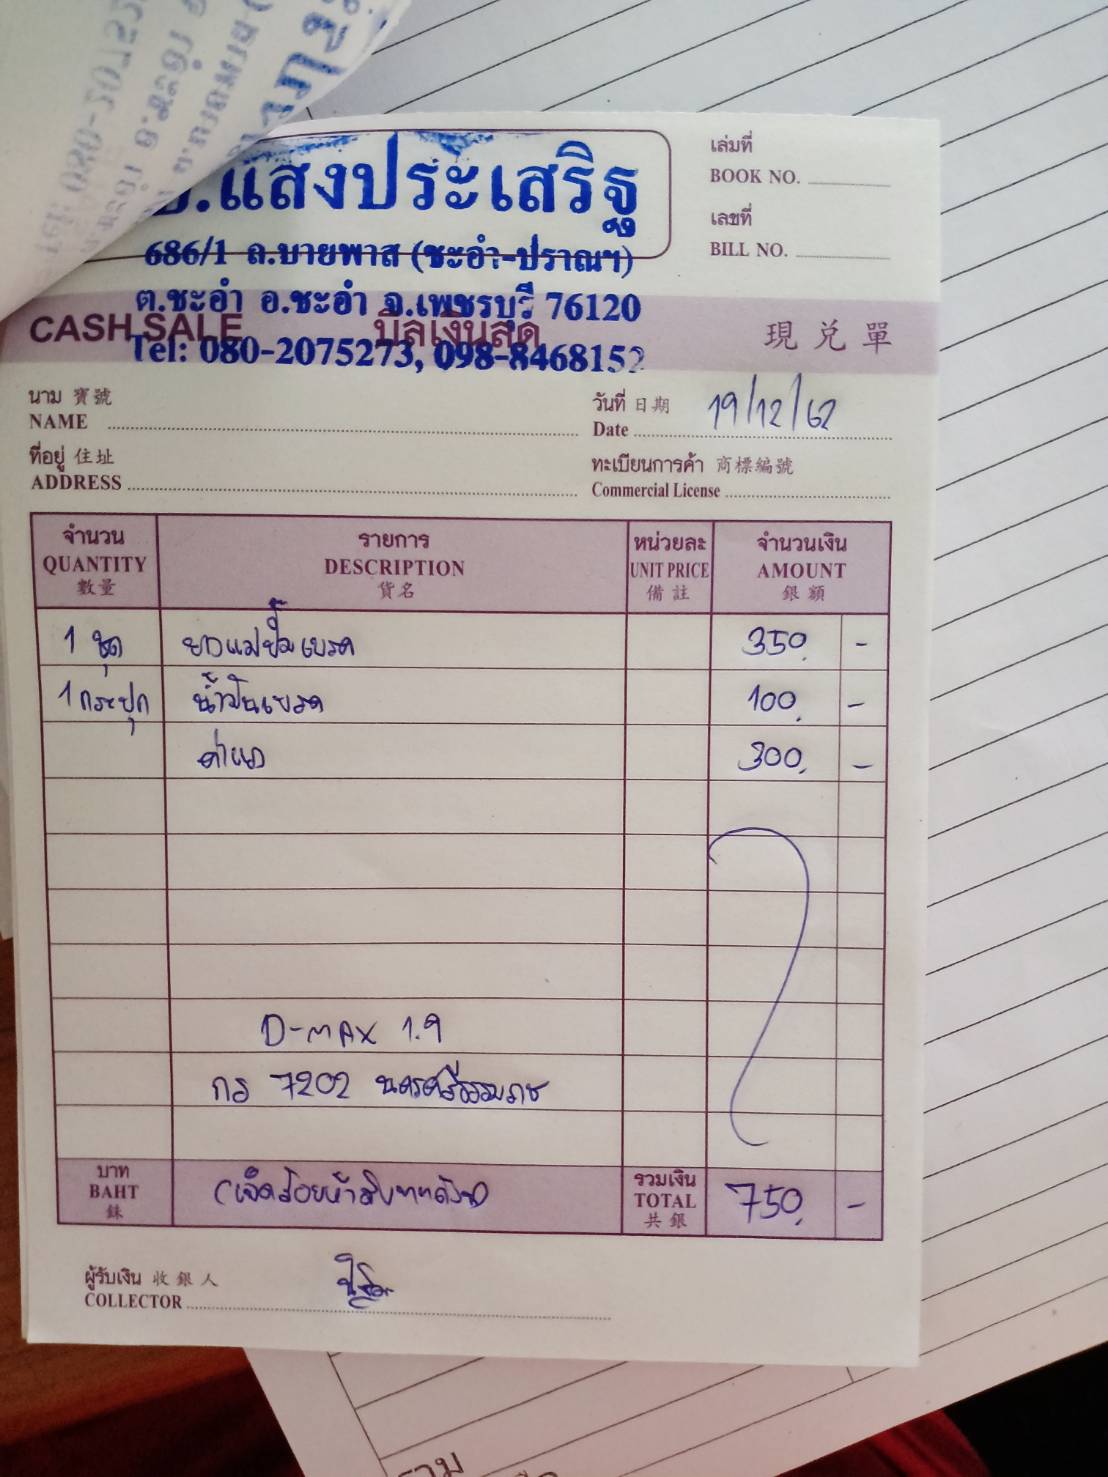 .แสงประเสริฐ
686/1 ถ.บายพาส (ชะอำ-ปราณฯ)
ต.ชะอำ อ.ชะอำ จ.เพชรบุรี 76120
Tel: 080-2075273, 098-8468152
เล่มที่
BOOK NO.
เลขที่
BILL NO.
CASH SALE บิลเงินสด 現兑單
นาม 寶號
NAME
วันที่ 日期
Date 19/12/62
ที่อยู่ 住址
ADDRESS
ทะเบียนการค้า 商標編號
Commercial License
จำนวน รายการ หน่วยละ จำนวนเงิน
QUANTITY DESCRIPTION UNIT PRICE AMOUNT
數量 貨名 備註 銀額
1 ชุด ยางแม่ปั๊มเบรค 350. -
1 กระปุก น้ำมันเบรค 100. -
ค่าแรง 300. -
D-MAX 1.9
กร 7202 นครศรีธรรมราช
บาท
BAHT
銖
(เจ็ดร้อยห้าสิบบาทถ้วน)
รวมเงิน
TOTAL
共銀
750. -
ผู้รับเงิน 收銀人
COLLECTOR
รวม